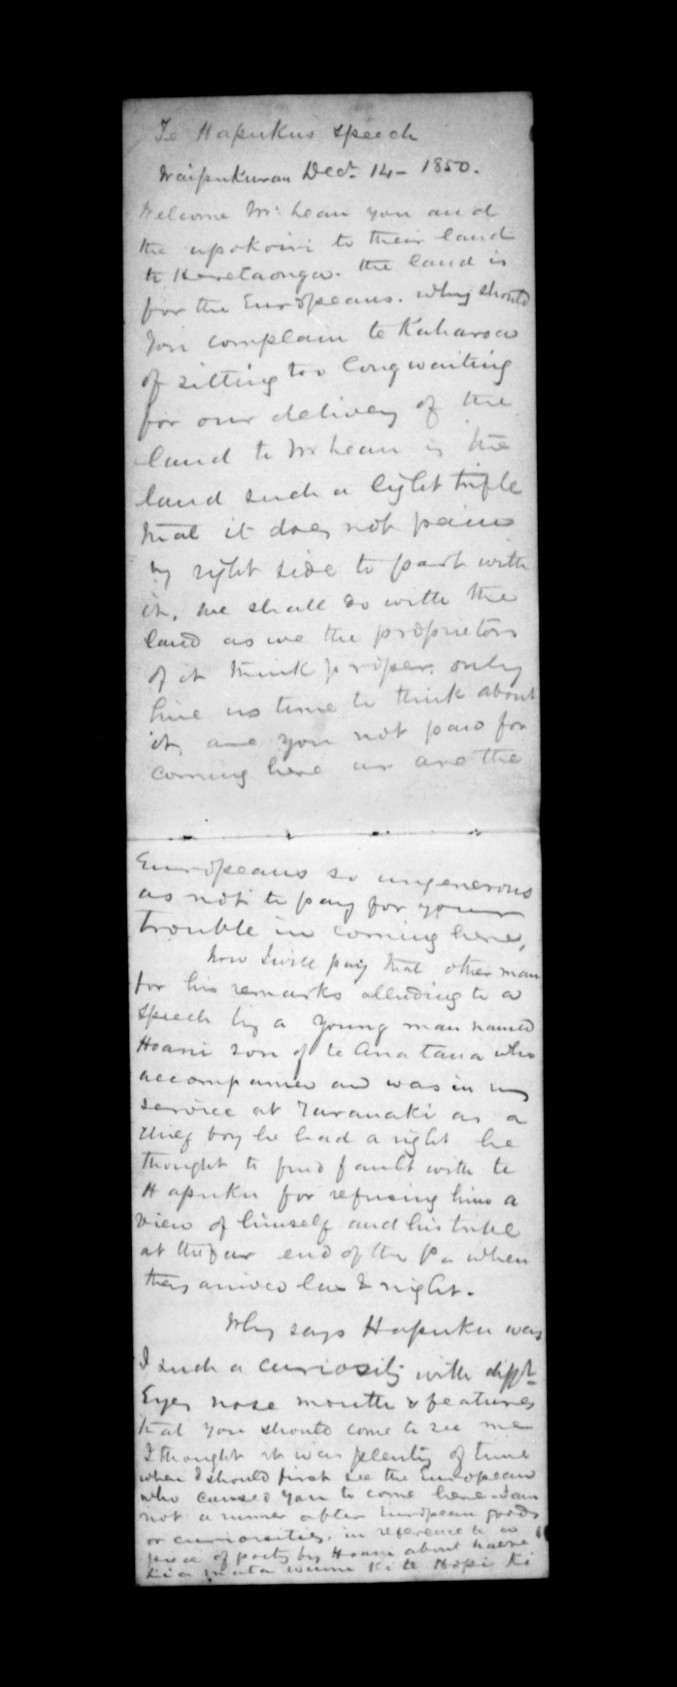 Te Hapukus speech
Waipukurau Decr. 14 - 1850.
Welcome Mr. Lean you and
the upokoiri to their land
te Heretaonga. the land is
for the Europeans. why should
you complain te Kaharoa
of sitting too long waiting
for our delivery of the
land to Mr Lean is the
land such a light trifle
that it does not pain
my right side to part with
it, we shall do with the
land as we the proprietors
of it think proper. only
give us time to think about
it, are you not paid for
coming here or are the
Europeans so ungenerous
as not to pay for your
trouble in coming here,
Now I will pay that other man
for his remarks alluding to a
speech by a young man named
Hoani son of te Anatana who
accompanied and was in my
service at Taranaki as a
chief boy he had a right he
thought to find fault with te
Hapuku for refusing him a
view of himself and his tribe
at the far end of the Pa when
they arrived last night.
Why says Hapuku was
I such a curiosity with difft
Eyes nose mouth & features
that you should come to see me
I thought it was plenty of time
when I should first see the European
who caused you to come here I am
not a runner after European goods
or curiosities. in reference to a
piece of poetry by Hoani about haere
kia mata ki te Hopi ki